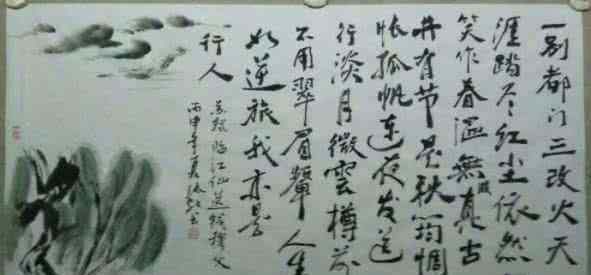 一别都门三改火天
涯踏尽红尘依然
笑作春温無波真古
井有节是秋筠惆
怅孤帆连夜发送
行淡月微雲樽前
不用翠眉颦人生
如逆旅我亦是
行人
苏轼临江仙送钱穆父
丙申年夏